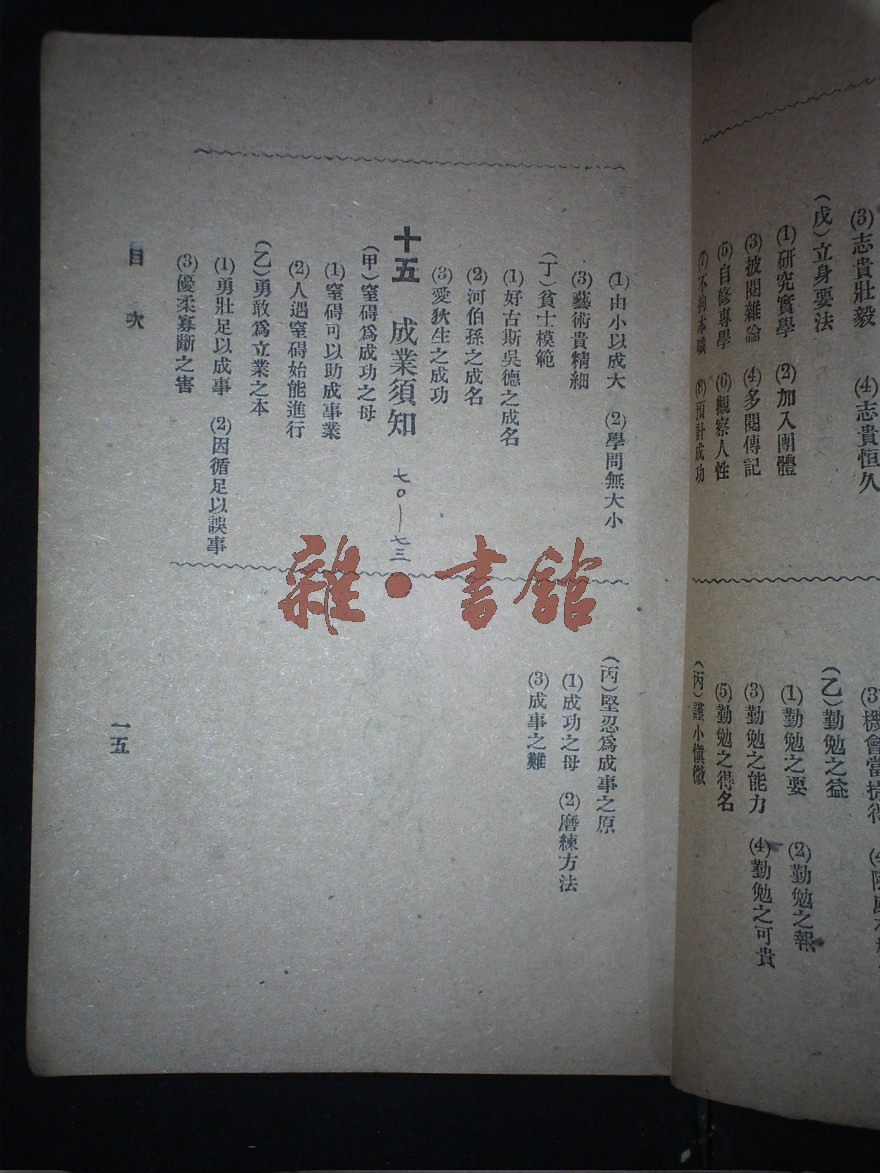 (3)志貴壯毅　(4)志貴恒久
(戊)立身要法
(1)研究實學　(2)加入團體
(3)披閱雜論　(4)多閱傳記
(5)自修專學　(6)觀察人性
(7)不拘本職　(8)預計成功
(3)機會當捉得
(乙)勤勉之益
(1)勤勉之要　(2)勤勉之報
(3)勤勉之能力　(4)勤勉之可貴
(5)勤勉之得名
(丙)謹小愼微
(1)由小以成大　(2)學問無大小
(3)藝術貴精細
(丁)貧士模範
(1)好古斯吳德之成名
(2)河伯孫之成名
(3)愛狄生之成功
十五　成業須知　七〇—七三
(甲)窒碍爲成功之母
(1)窒碍可以助成事業
(2)人遇窒碍始能進行
(乙)勇敢爲立業之本
(1)勇壯足以成事　(2)因循足以誤事
(3)優柔寡斷之害
(丙)堅忍爲成事之原
(1)成功之母　(2)磨練方法
(3)成事之難
目次
一五
雜·書館